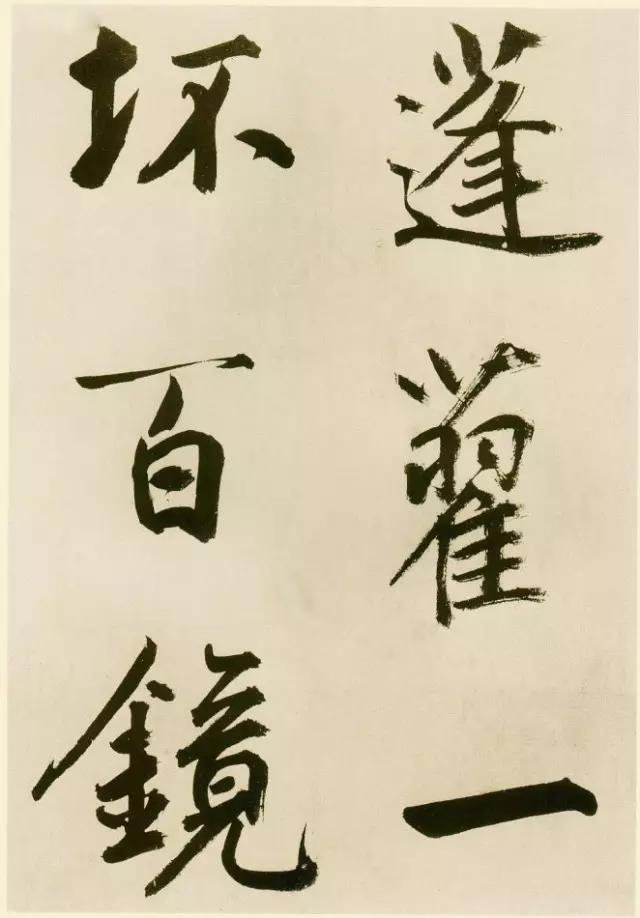 蓬藋一
坏百鏡